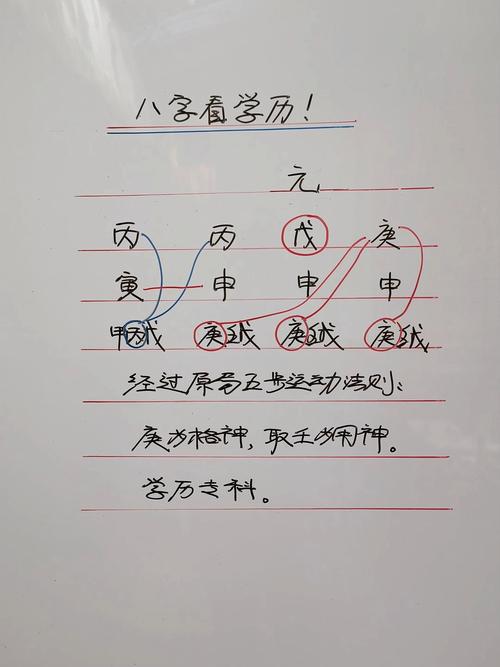 八字看学历!
元
丙 丙 戊 庚
寅 申 申 申
甲丙戊 庚壬戊 庚壬戊 庚壬戊
经过原局五步运动法则:
庚为格神,取壬为用神。
学历专科。